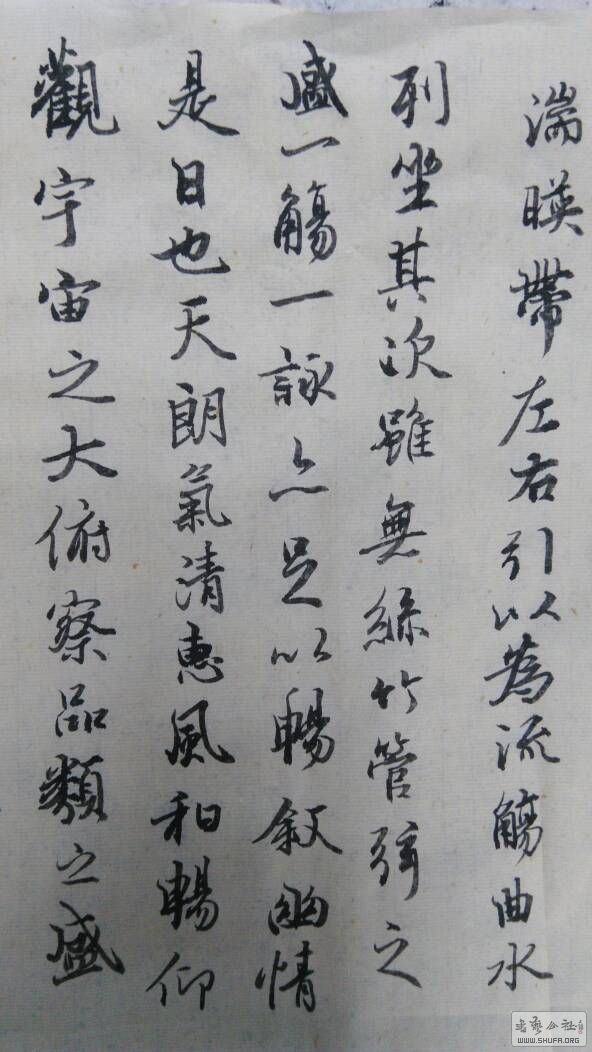 湍暎帶左右引以為流觴曲水
列坐其次雖無絲竹管弦之
盛一觴一詠亦足以暢敘幽情
是日也天朗氣清惠風和暢仰
觀宇宙之大俯察品類之盛
WWW.SHUFA.ORG